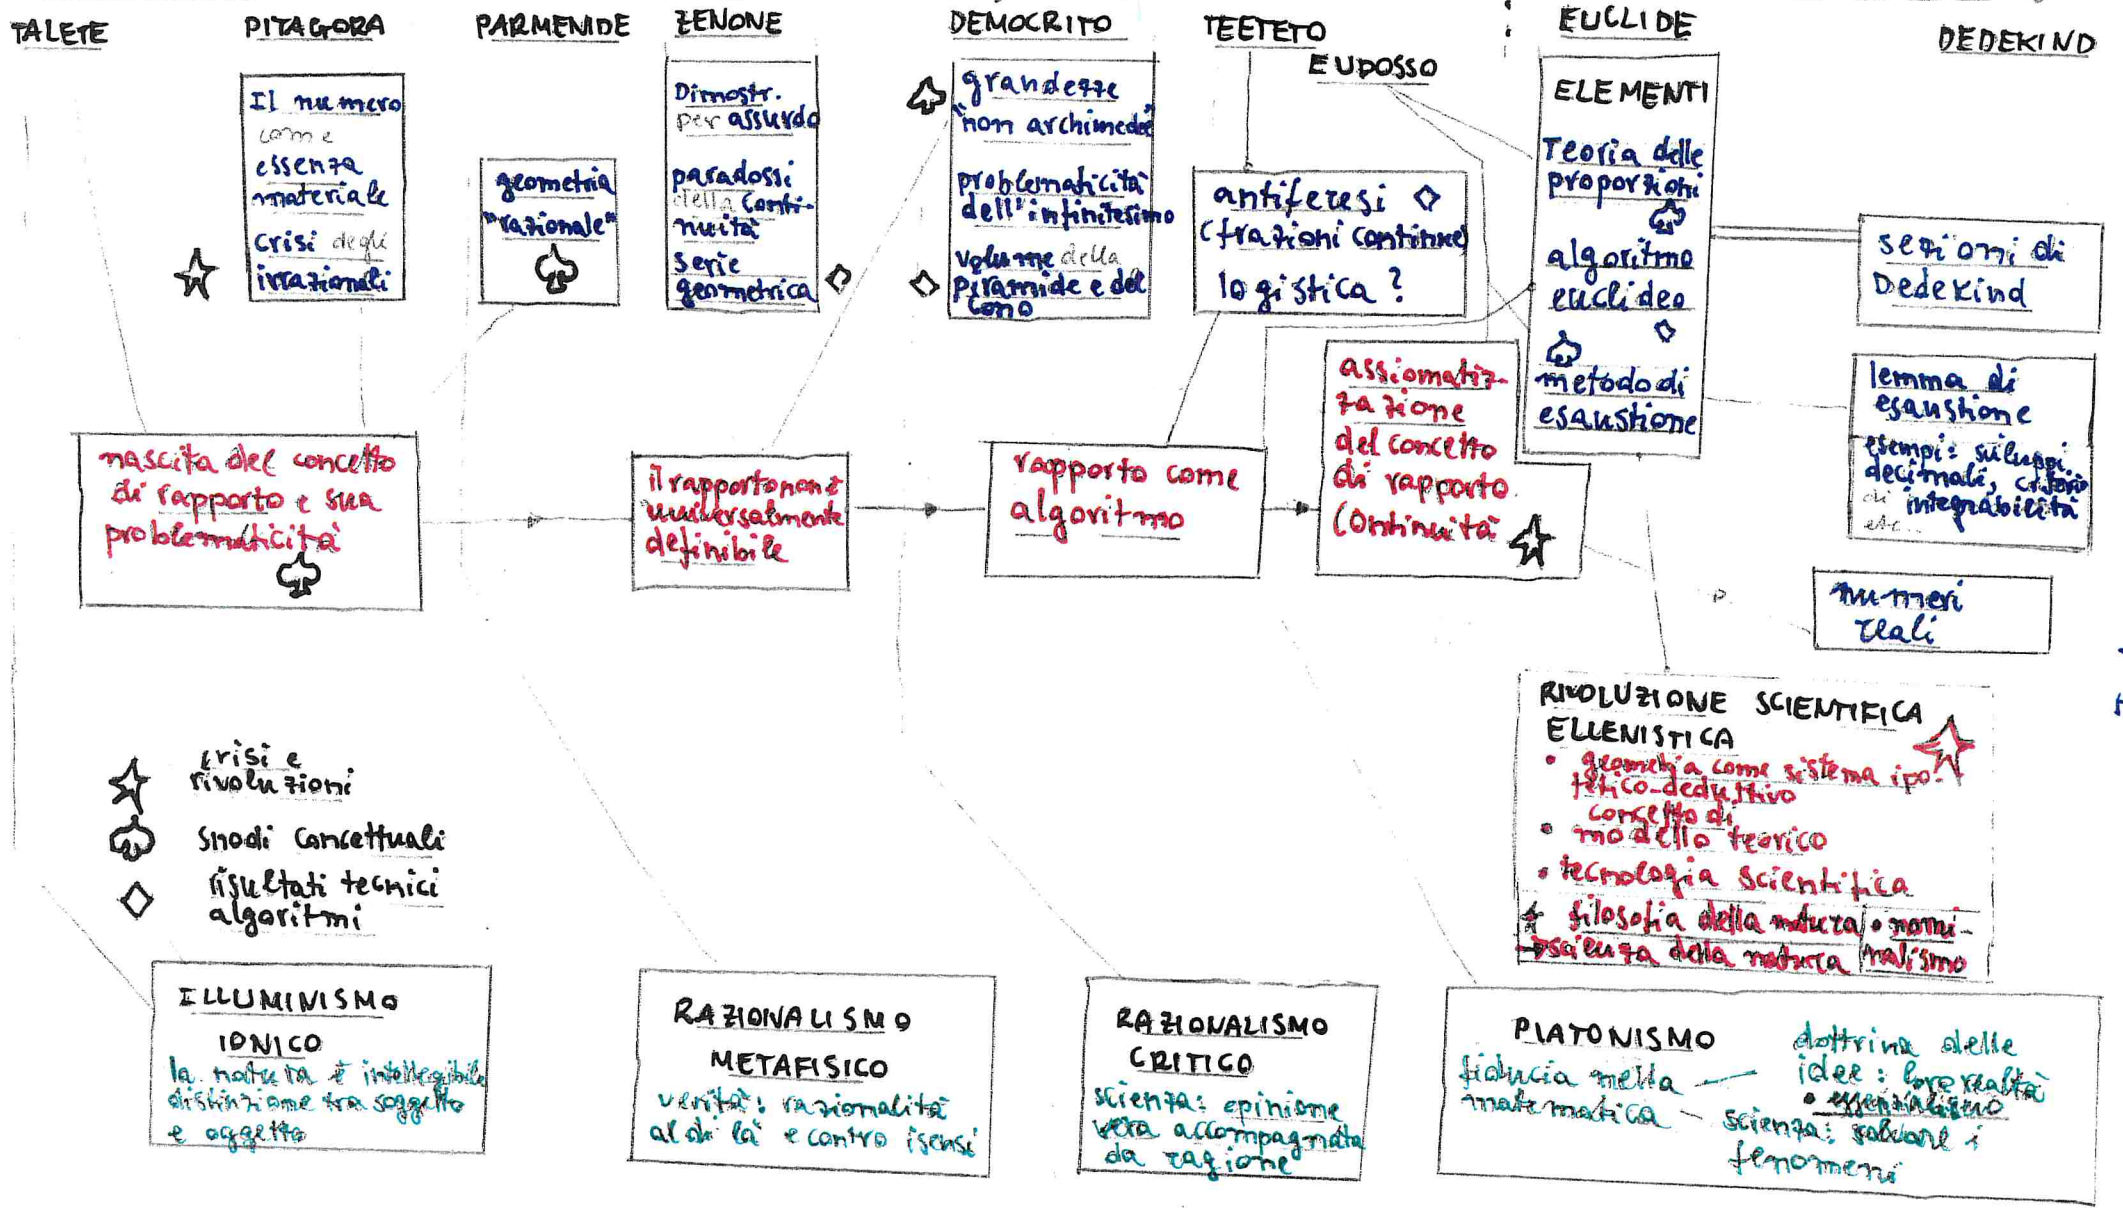 TALETE
PITAGORA
PARMENIDE
ZENONE
DEMOCRITO
TEETETO
EUDOSSO
EUCLIDE
DEDEKIND
Il numero
come
essenza
materiale
crisi degli
irrazionali
geometria
"razionale"
Dimostr.
per assurdo
paradossi
della conti-
nuità
serie
geometrica
grandezze
"non archimedee"
problematicità
dell'infinitesimo
volume della
piramide e del
cono
antiferesi
(frazioni continue)
logistica?
ELEMENTI
Teoria delle
proporzioni
algoritmo
euclideo
metodo di
esaustione
sezioni di
Dedekind
lemma di
esaustione
esempi: sviluppi
decimali, criterio
di integrabilità
etc..
numeri
reali
nascita del concetto
di rapporto e sua
problematicità
il rapporto non è
universalmente
definibile
rapporto come
algoritmo
assiomatiz-
zazione
del concetto
di rapporto
Continuità
RIVOLUZIONE SCIENTIFICA
ELLENISTICA
• geometria come sistema ipo-
tetico-deduttivo
concetto di
• modello teorico
• tecnologia scientifica
filosofia della natura • nomi-
→ scienza della natura nalismo
crisi e
rivoluzioni
snodi concettuali
risultati tecnici
algoritmi
ILLUMINISMO
IONICO
la natura è intellegibile
distinzione tra soggetto
e oggetto
RAZIONALISMO
METAFISICO
verità: razionalità
al di là e contro i sensi
RAZIONALISMO
CRITICO
scienza: opinione
vera accompagnata
da ragione
PLATONISMO
fiducia nella
matematica
dottrina delle
idee: loro realtà
• essenzialismo
scienza: salvare i
fenomeni